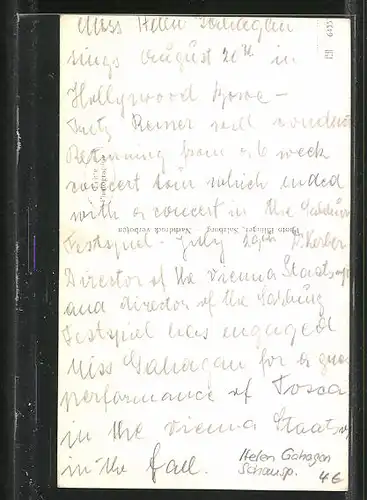 Miss Helen Gahagan
sings August 20th in
Hollywood Bowl –
Fritz Reiner will conduct
Returning from a 6 week
concert tour which ended
with a concert in the
Festspiel – July 29th Dr. Kerber
Director of the Vienna Staatsop
and director of the Salzburg
Festspiel has engaged
Miss Gahagan for a gues
performance of Tosca
in the Vienna Staats
in the fall.
Helen Gahagen
Schausp.
46
Photo Ellinger, Salzburg Nachdruck verboten